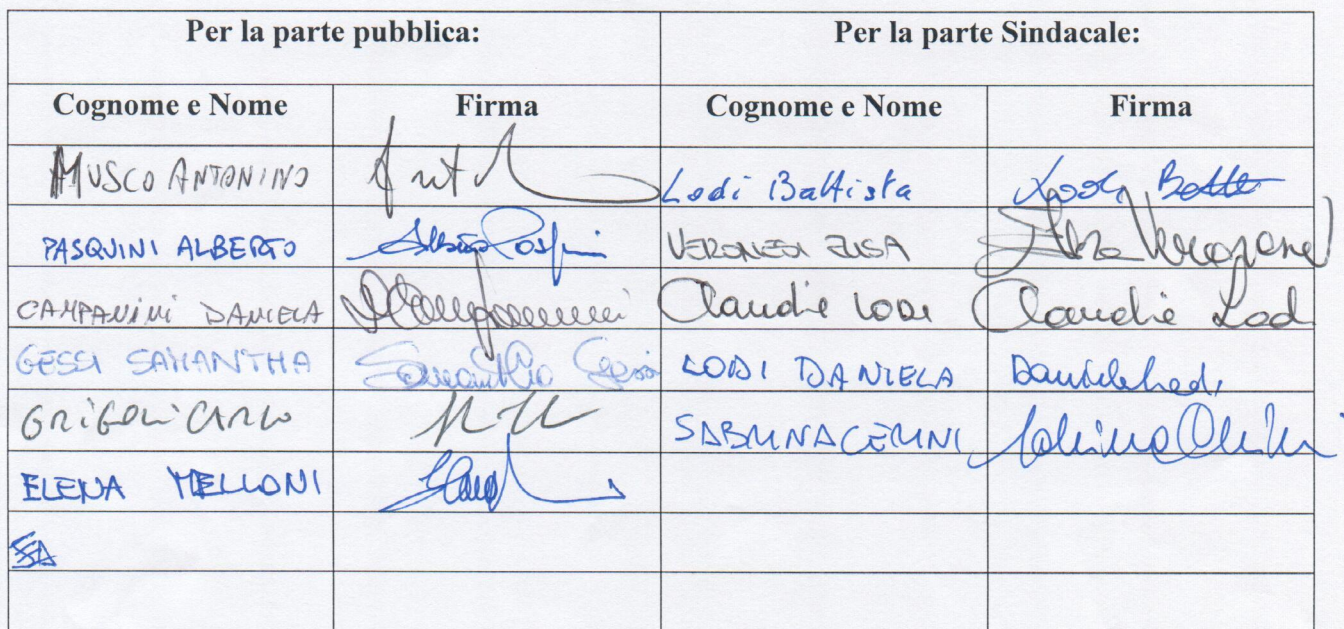 Per la parte pubblica: Per la parte Sindacale:
Cognome e Nome Firma Cognome e Nome Firma
MUSCO ANTONINO Lodi Battista
PASQUINI ALBERTO VERONESI ELISA
CAMPANINI DANIELA Claudie LODI Claudie Lodi
GESSI SAMANTHA Samantha Gessi LODI DANIELA Daniela Lodi
GRIGOLI CARLO SABRINA CERLINI
ELENA MELLONI